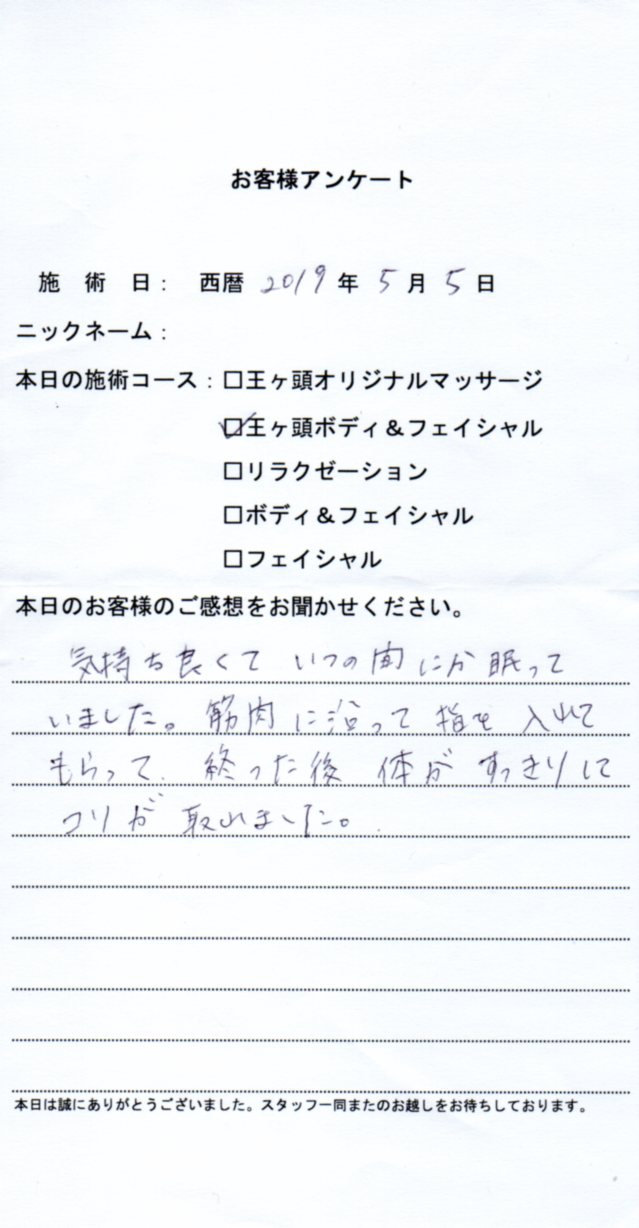 お客様アンケート
施 術 日： 西暦 2019 年 5 月 5 日
ニックネーム：
本日の施術コース：□王ヶ頭オリジナルマッサージ
☑王ヶ頭ボディ＆フェイシャル
□リラクゼーション
□ボディ＆フェイシャル
□フェイシャル
本日のお客様のご感想をお聞かせください。
気持ち良くて いつの間にか 眠って
いました。筋肉に沿って 指を 入れて
もらって、終った後 体が すっきりして
コリが 取れました。
本日は誠にありがとうございました。スタッフ一同またのお越しをお待ちしております。